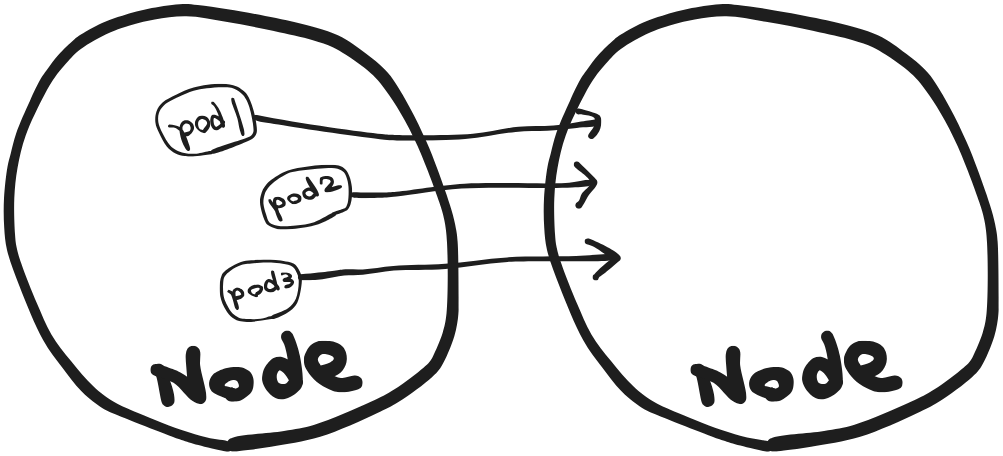 pod 1
pod2
pod3
Node
Node